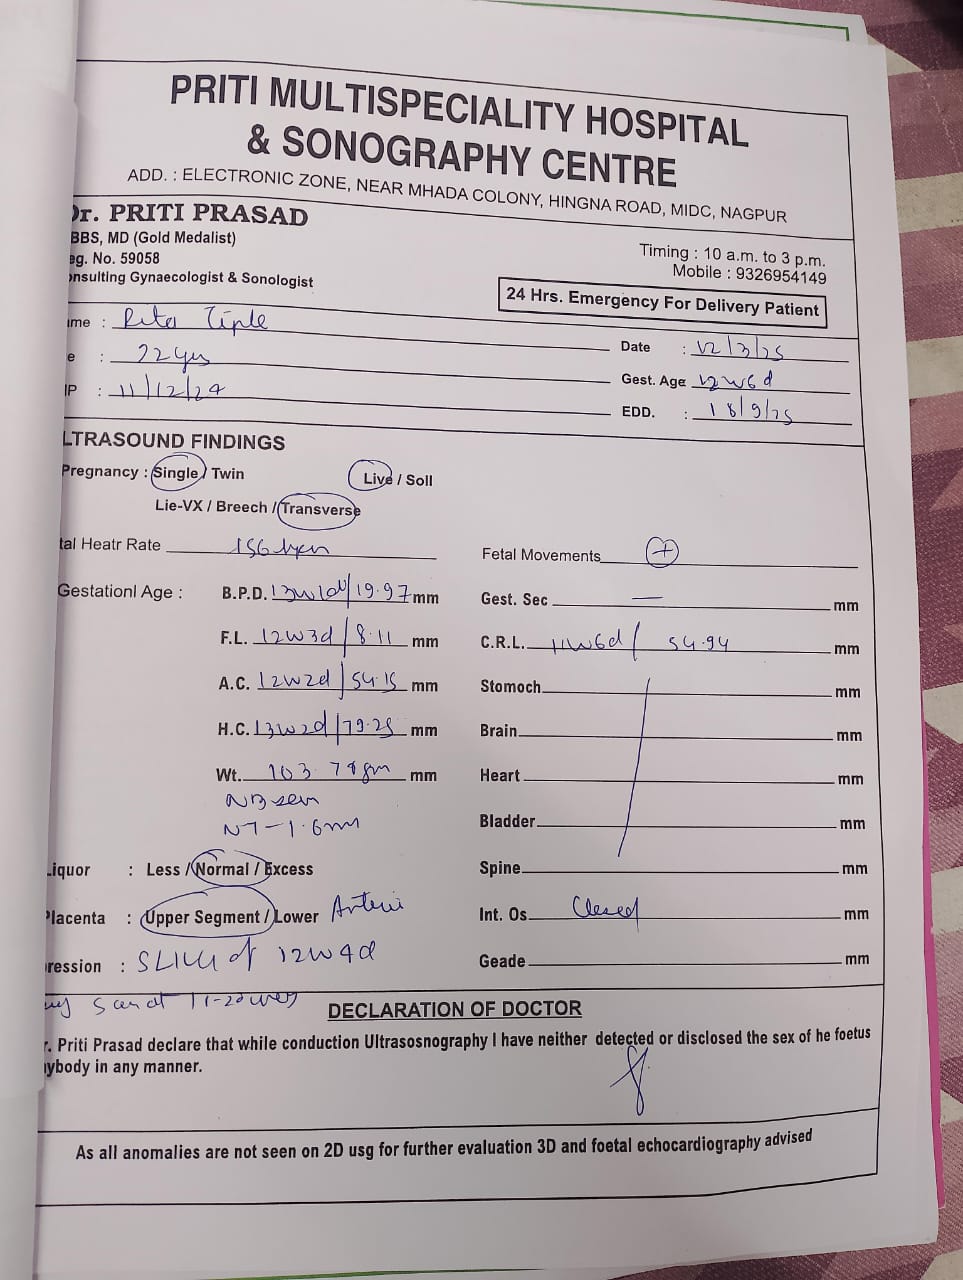 PRITI MULTISPECIALITY HOSPITAL
& SONOGRAPHY CENTRE
ADD. : ELECTRONIC ZONE, NEAR MHADA COLONY, HINGNA ROAD, MIDC, NAGPUR
Dr. PRITI PRASAD
BBS, MD (Gold Medalist)
eg. No. 59058
onsulting Gynaecologist & Sonologist
Timing : 10 a.m. to 3 p.m.
Mobile : 9326954149
24 Hrs. Emergency For Delivery Patient
ame : Rita Tiple
Date : 12/3/25
e : 22 yrs
Gest. Age 12w6d
IP : 11/12/24
EDD. : 18/9/25
LTRASOUND FINDINGS
Pregnancy : Single / Twin Live / Soll
Lie-VX / Breech / Transverse
tal Heatr Rate 156
Fetal Movements +
Gestationl Age : B.P.D. 13w1d/19.97 mm
Gest. Sec — mm
F.L. 12w3d/8.11 mm
C.R.L. 11w6d/54.94 mm
A.C. 12w2d/54.15 mm
Stomoch mm
H.C. 13w2d/79.25 mm
Brain mm
Wt. 103.78gm mm
Heart mm
NB seen
NT-1.6mm
Bladder mm
Liquor : Less / Normal / Excess
Spine mm
Placenta : Upper Segment / Lower
Int. Os. Closed mm
ression : SLIUG of 12w4d
Geade mm
scan at
DECLARATION OF DOCTOR
r. Priti Prasad declare that while conduction Ultrasosnography I have neither detected or disclosed the sex of he foetus
ybody in any manner.
As all anomalies are not seen on 2D usg for further evaluation 3D and foetal echocardiography advised